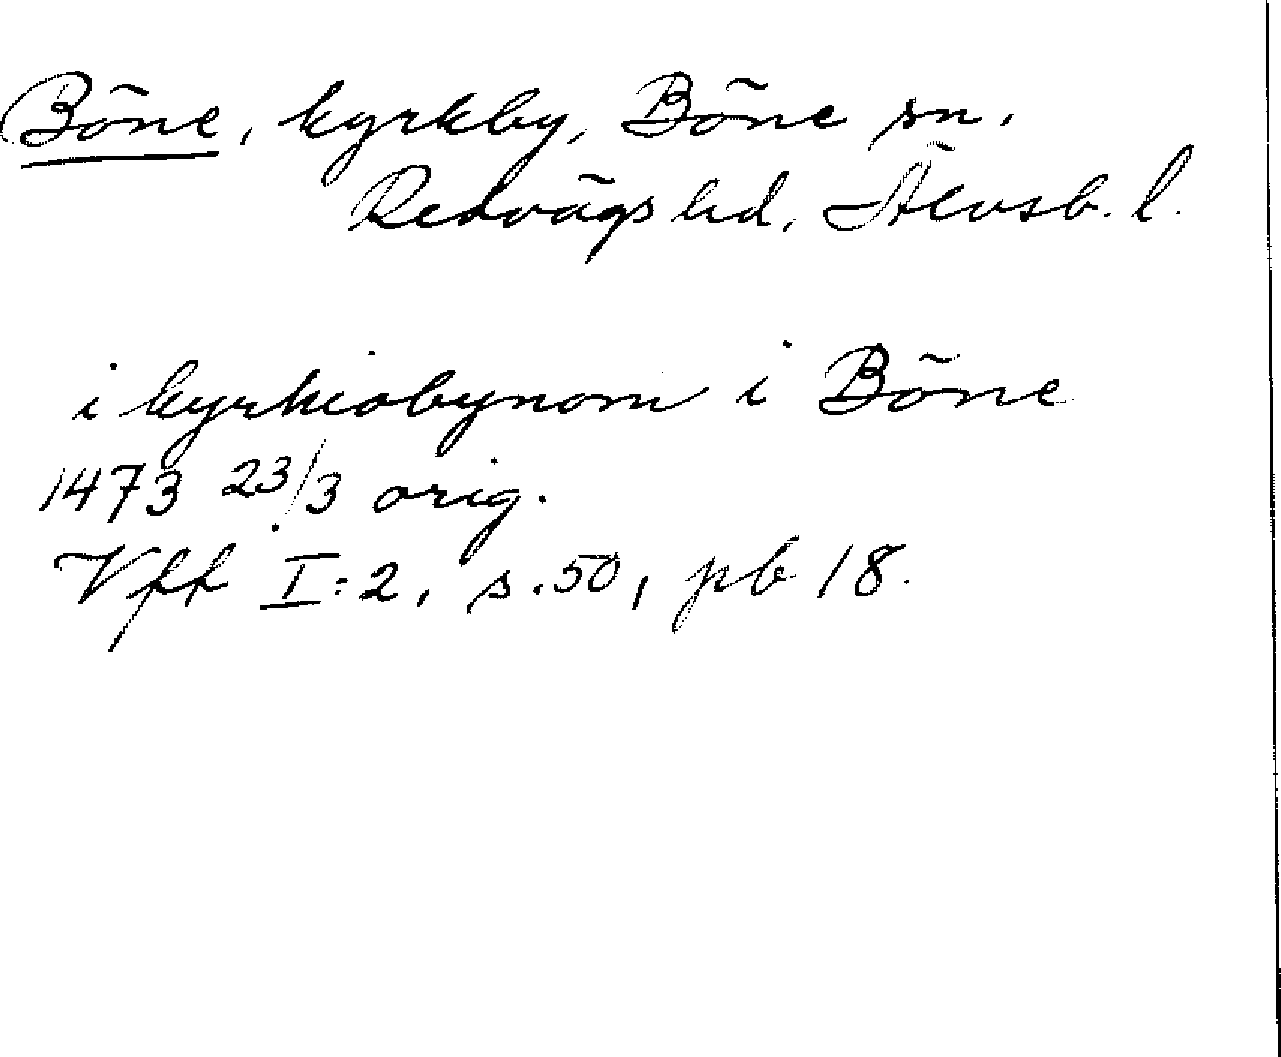 Böne, kyrkby, Böne sn.
Redvägs hd. Älvsb. l.
i kyrkiobynom i Böne
1473 23/3 orig.
Vff I:2, s. 50, pb 18.